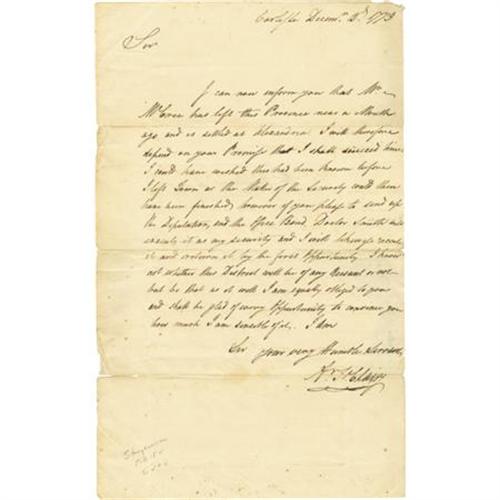 Carlisle Decemr. 2d. 1773
Sir
I can now inform you that Mr.
McCrea has left this Province near a Month
ago and is settled at Alexandria I will therefore
depend on your Promise that I shall succeed him
I could have wished this had been known before
I left Town as the Matter of the Security could then
have been finished, however if you please to send up
the Deputation, and the Office Bond, Doctor Smith will
execute it as my security and I will likewise execute
it and return it by the first Opportunity. I know
not whether this District will be of any Amount or not
but be that as it will I am equally obliged to you
and shall be glad of every Opportunity to convince you
how much I am sensible of it. I am
Sir your very Humble Servant
Ar. St. Clair